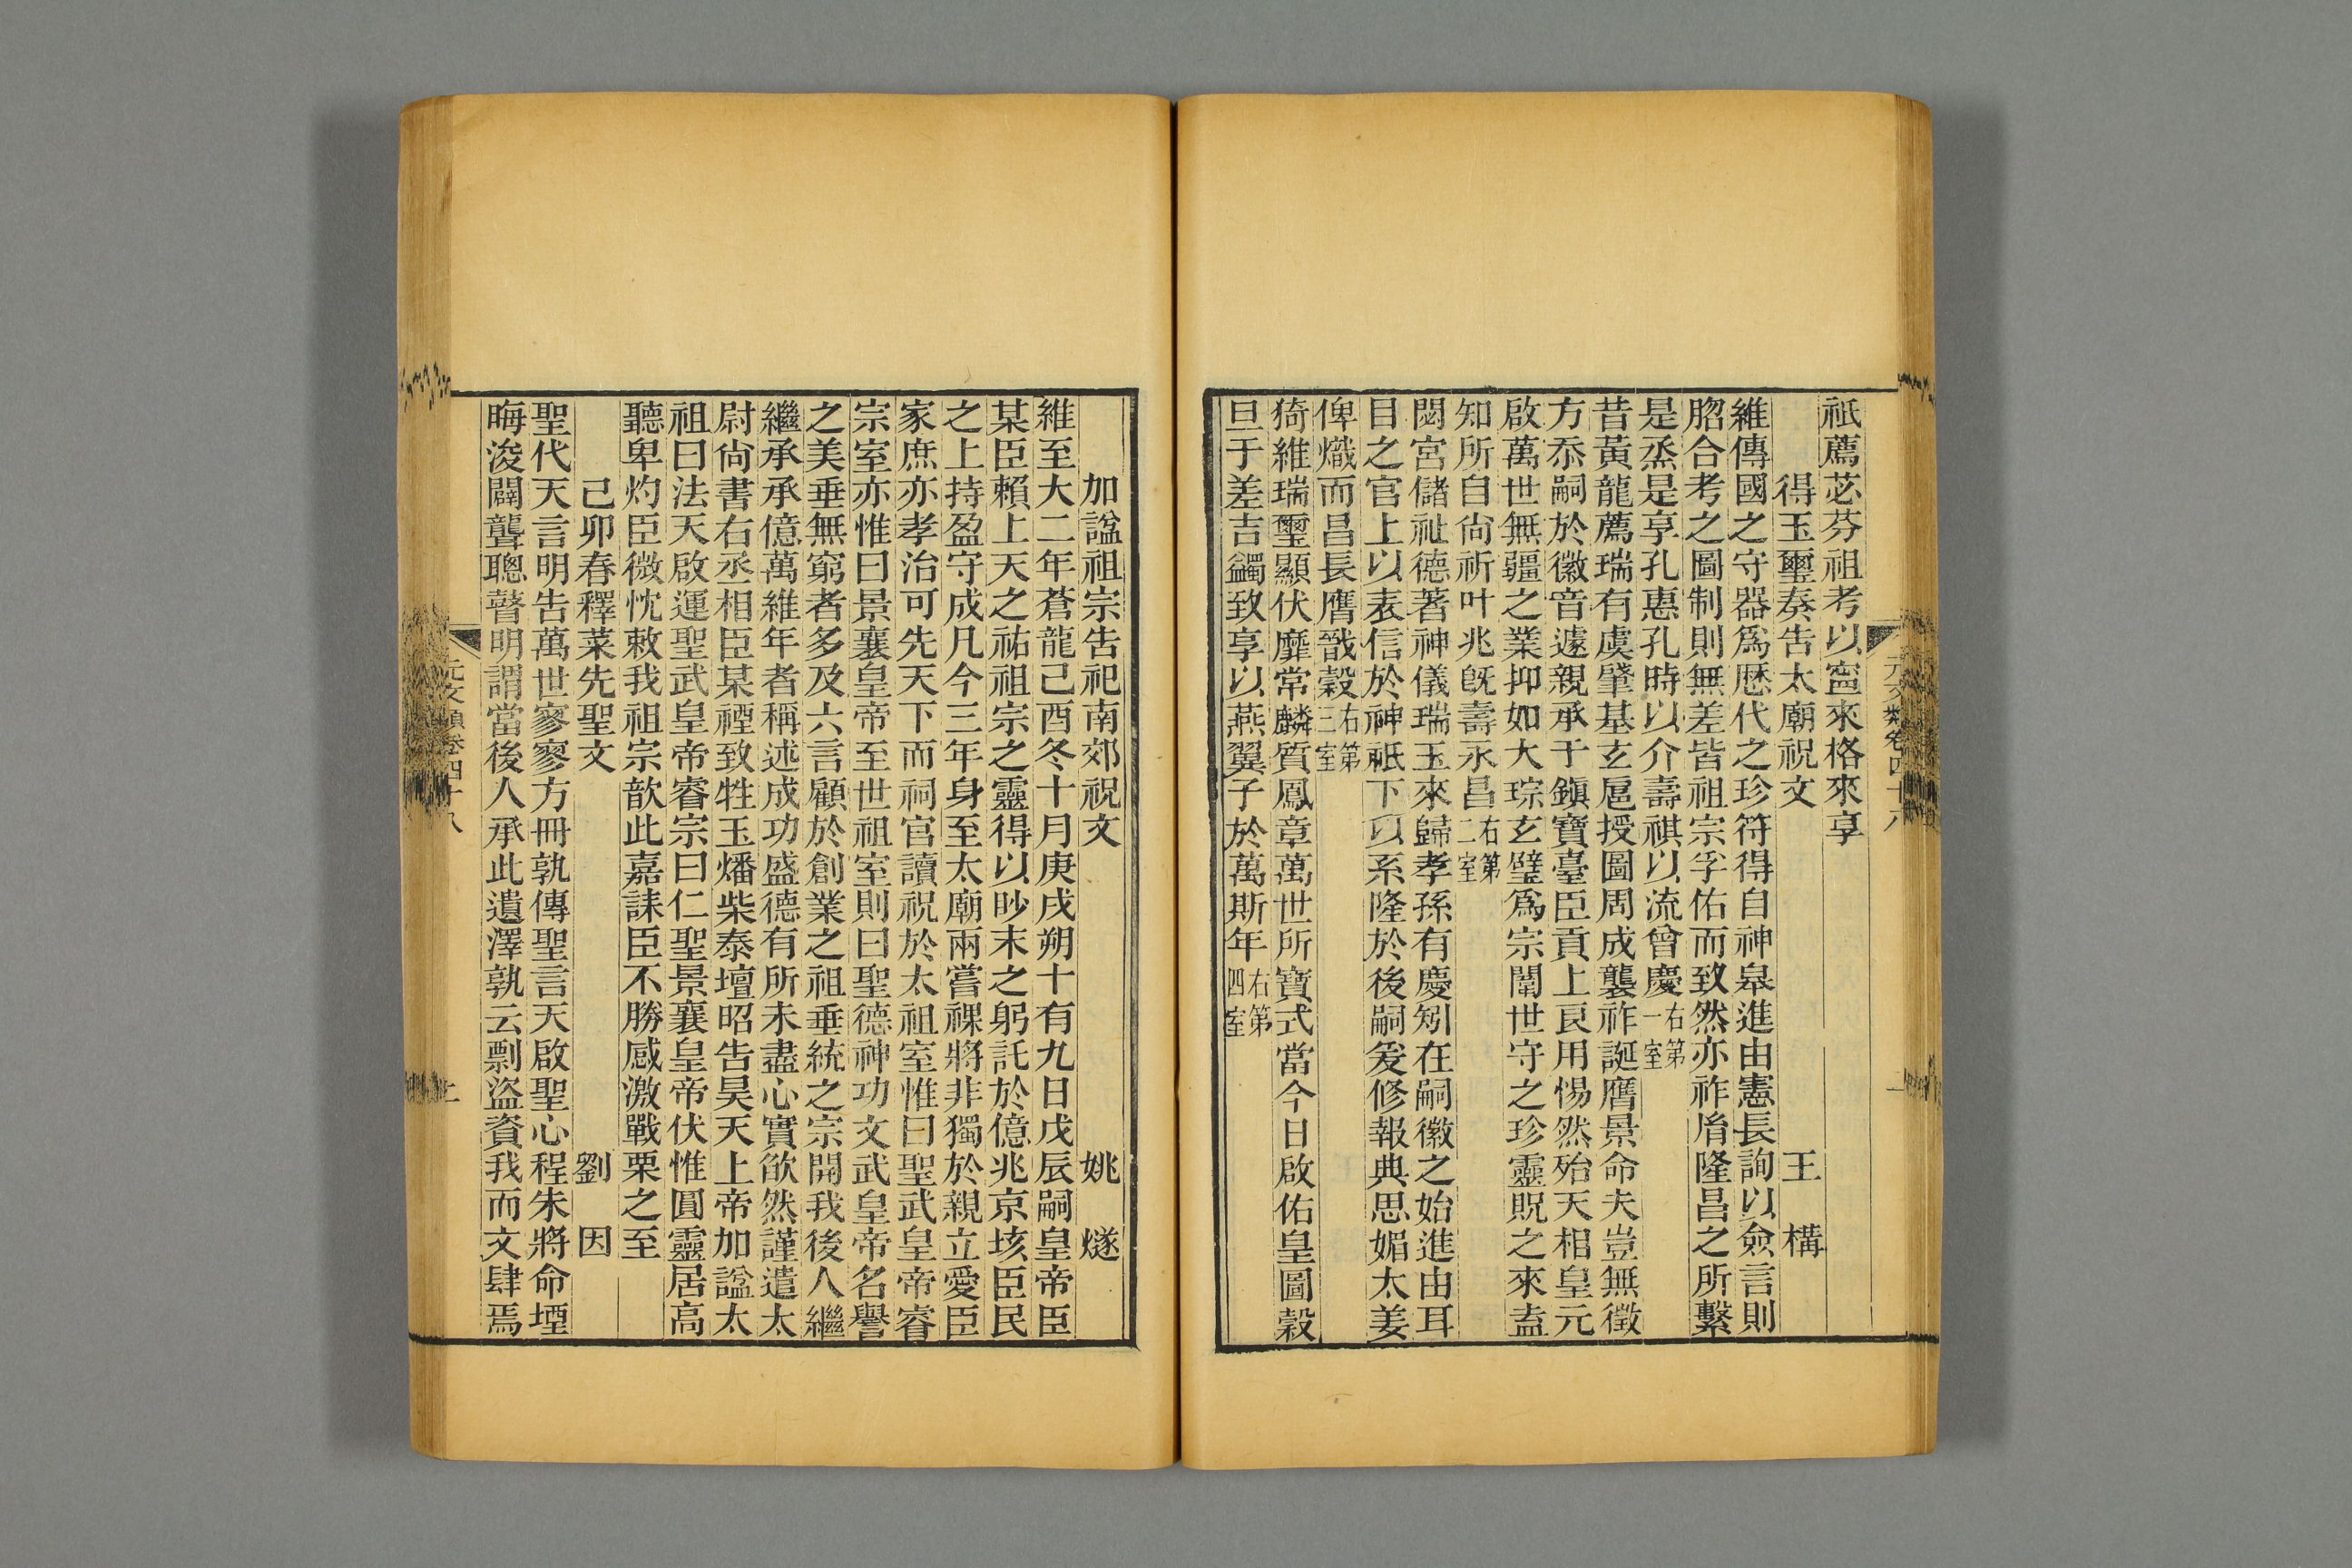 祇薦苾芬祖考以寍來格來享
得玉璽奏告太廟祝文 王構
維傳國之守器爲歷代之珍符得自神皋進由憲長詢以僉言則
脗合考之圖制則無差皆祖宗孚佑而致然亦祚胤隆昌之所繫
是烝是享孔惠孔時以介壽祺以流曾慶右第一室
昔黃龍薦瑞有虞肇基玄扈授圖周成襲祚誕膺景命夫豈無徵
方忝嗣於徽音遽親承于鎭寶臺臣貢上艮用惕然殆天相皇元
啟萬世無疆之業抑如大琮玄璧爲宗闈世守之珍靈貺之來盍
知所自尙祈叶兆旣壽永昌右第二室
閟宮儲祉德著神儀瑞玉來歸孝孫有慶矧在嗣徽之始進由耳
目之官上以表信於神祇下以系隆於後嗣爰修報典思媚太姜
俾熾而昌長膺戩穀右第三室
猗維瑞璽顯伏靡常麟質鳳章萬世所寶式當今日啟佑皇圖穀
旦于差吉蠲致享以燕翼子於萬斯年右第四室
元文類卷四十八
加諡祖宗告祀南郊祝文 姚燧
維至大二年蒼龍己酉冬十月庚戌朔十有九日戊辰嗣皇帝臣
某臣賴上天之祐祖宗之靈得以眇末之躬託於億兆京垓臣民
之上持盈守成凡今三年身至太廟兩嘗祼將非獨於親立愛臣
家庶亦孝治可先天下而祠官讀祝於太祖室惟曰聖武皇帝睿
宗室亦惟曰景襄皇帝至世祖室則曰聖德神功文武皇帝名譽
之美垂無窮者多及六言顧於創業之祖垂統之宗開我後人繼
繼承承億萬維年者稱述成功盛德有所未盡心實欿然謹遣太
尉尙書右丞相臣某禋致牲玉燔柴泰壇昭告昊天上帝加諡太
祖曰法天啟運聖武皇帝睿宗曰仁聖景襄皇帝伏惟圓靈居高
聽卑灼臣微忱敕我祖宗歆此嘉誄臣不勝感激戰栗之至
己卯春釋菜先聖文 劉因
聖代天言明告萬世寥寥方冊孰傳聖言天啟聖心程朱將命堙
晦浚闢聾聰瞽明謂當後人承此遺澤孰云剽盜資我而文肆焉
元文類卷四十八